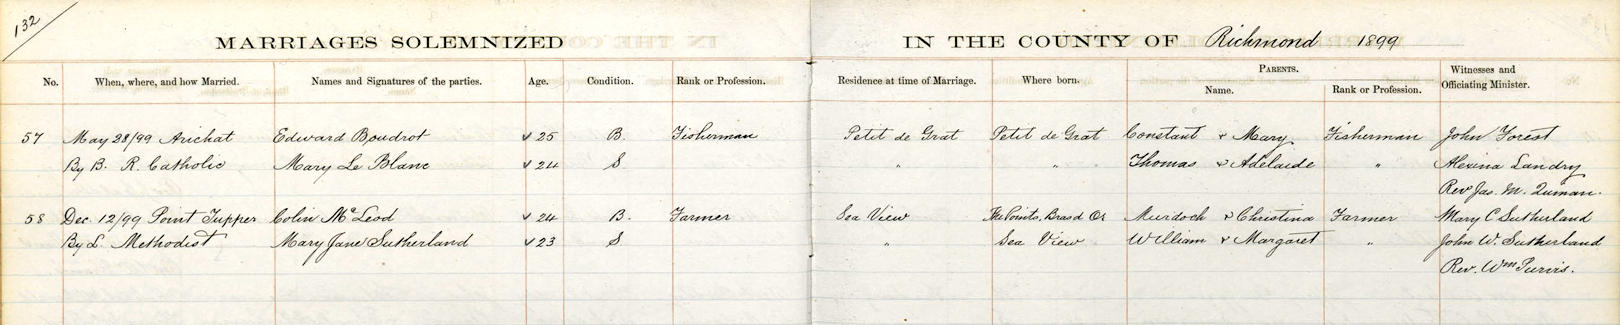 132
MARRIAGES SOLEMNIZED IN THE COUNTY OF Richmond 1899
No. When, where, and how Married. Names and Signatures of the parties. Age. Condition. Rank or Profession. Residence at time of Marriage. Where born. PARENTS. Name. Rank or Profession. Witnesses and Officiating Minister.
57 May 28/99 Arichat Edward Boudrot 25 B. Fisherman Petit de Grat Petit de Grat Constant & Mary Fisherman John Forest
By B. R. Catholic Mary Le Blanc 24 S " " Thomas & Adelaide " Alexina Landry
Rev Jas. M. Quinan.
58 Dec. 12/99 Point Tupper Colin McLeod 24 B. Farmer Sea View The Points, Bras d Or Murdoch & Christina Farmer Mary C Sutherland
By L. Methodist Mary Jane Sutherland 23 S " Sea View William & Margaret " John W. Sutherland
Rev. Wm Purvis.